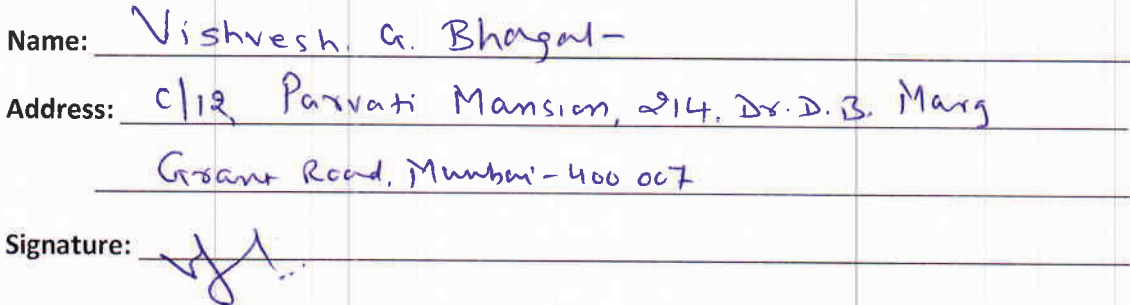 Name: Vishvesh. G. Bhagat
Address: C/12 Parvati Mansion, 214, Dr. D. B. Marg
Grant Road, Mumbai - 400 007
Signature: